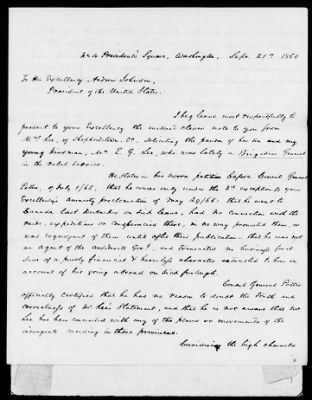 Presidents' Square, Washington, Sept. 21st 1865
To His Excellency Andrew Johnson,
President of the United States.
I beg leave most respectfully to
present to your Excellency the enclosed note to you from
Mrs Lee, of Shepherdstown, Va. soliciting the pardon of her son and my
young kinsman, Mr. E. G. Lee, who was lately a Brigadier General
in the rebel service.
He states in his sworn petition before Consul General
Potter, of July 1/65, that he comes only under the 3d exception to your
Excellency's amnesty proclamation of May 29/65; that he went to
Canada last December on sick leave, had no connection with the
raids, expeditions or conspiracies there, in no way promoted them, or
was cognizant of them until after their publication; that he was not
an agent of the Govt., and transacted no business but
of a purely financial & harmless character to him on
account of his going abroad on sick furlough.
Consul General Potter
officially certifies that he has no reason to doubt the truth and
correctness of Mr Lee's statement, and that he is not aware that Mr
Lee has been connected with any of the plans or movements of the
insurgents residing in those provinces.
Considering the high character